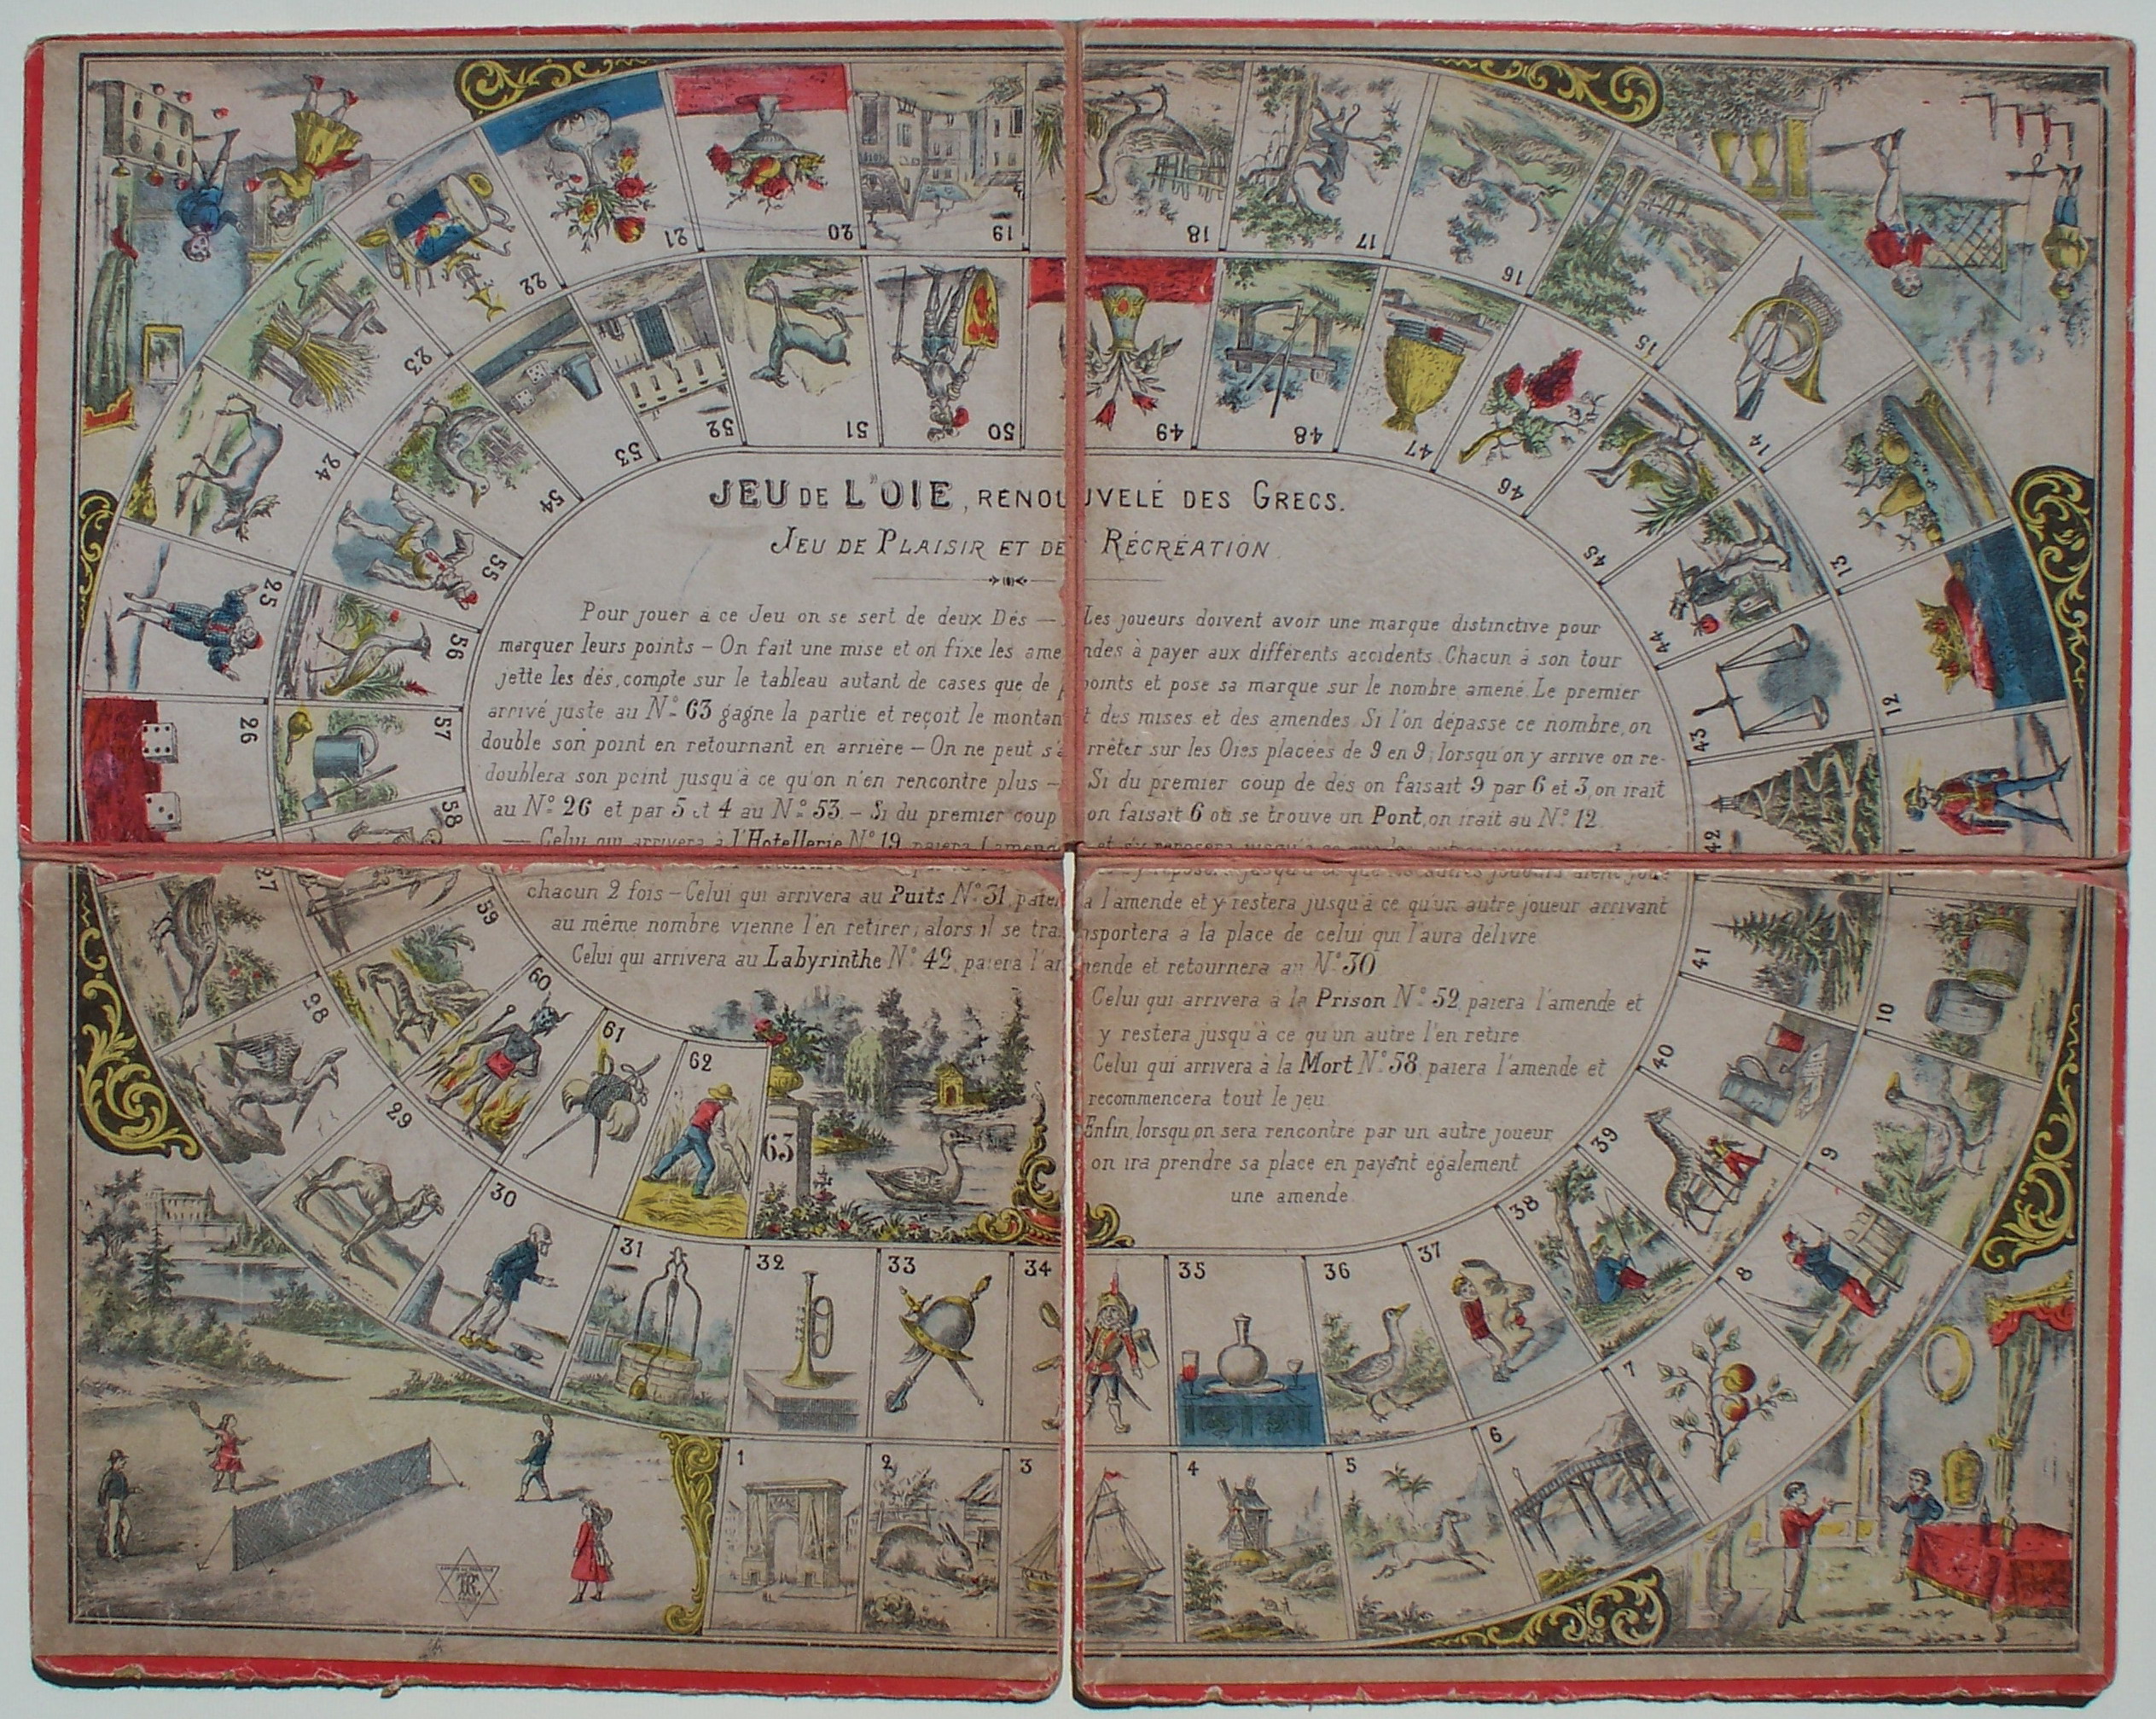 JEU DE L'OIE, RENOUVELÉ DES GRECS.
JEU DE PLAISIR ET DE RÉCRÉATION
Pour jouer à ce Jeu on se sert de deux Dés — Les joueurs doivent avoir une marque distinctive pour
marquer leurs points – On fait une mise et on fixe les amendes à payer aux différents accidents. Chacun à son tour
jette les dés, compte sur le tableau autant de cases que de points et pose sa marque sur le nombre amené. Le premier
arrivé juste au N° 63 gagne la partie et reçoit le montant des mises et des amendes. Si l'on dépasse ce nombre, on
double son point en retournant en arrière – On ne peut s'arrêter sur les Oies placées de 9 en 9; lorsqu'on y arrive on re-
doublera son point jusqu'à ce qu'on n'en rencontre plus – Si du premier coup de dés on faisait 9 par 6 et 3, on irait
au N° 26 et par 5 et 4 au N° 53. – Si du premier coup on faisait 6 où se trouve un Pont, on irait au N° 12
— Celui qui arrivera à l'Hotellerie N° 19 paiera l'amende et s'y reposera jusqu'à ce que les autres joueurs aient joué
chacun 2 fois – Celui qui arrivera au Puits N° 31, paiera l'amende et y restera jusqu'à ce qu'un autre joueur arrivant
au même nombre vienne l'en retirer; alors il se transportera à la place de celui qui l'aura délivré
Celui qui arrivera au Labyrinthe N° 42, paiera l'amende et retournera au N° 30
Celui qui arrivera à la Prison N° 52, paiera l'amende et
y restera jusqu'à ce qu'un autre l'en retire
Celui qui arrivera à la Mort N° 58, paiera l'amende et
recommencera tout le jeu.
Enfin, lorsqu'on sera rencontré par un autre joueur
on ira prendre sa place en payant également
une amende.
1
2
3
4
5
6
7
8
9
10
12
13
14
15
16
17
18
19
20
21
22
23
24
25
26
27
28
29
30
31
32
33
34
35
36
37
38
39
40
41
42
43
44
45
46
47
48
49
50
51
52
53
54
55
56
57
58
59
60
61
62
63